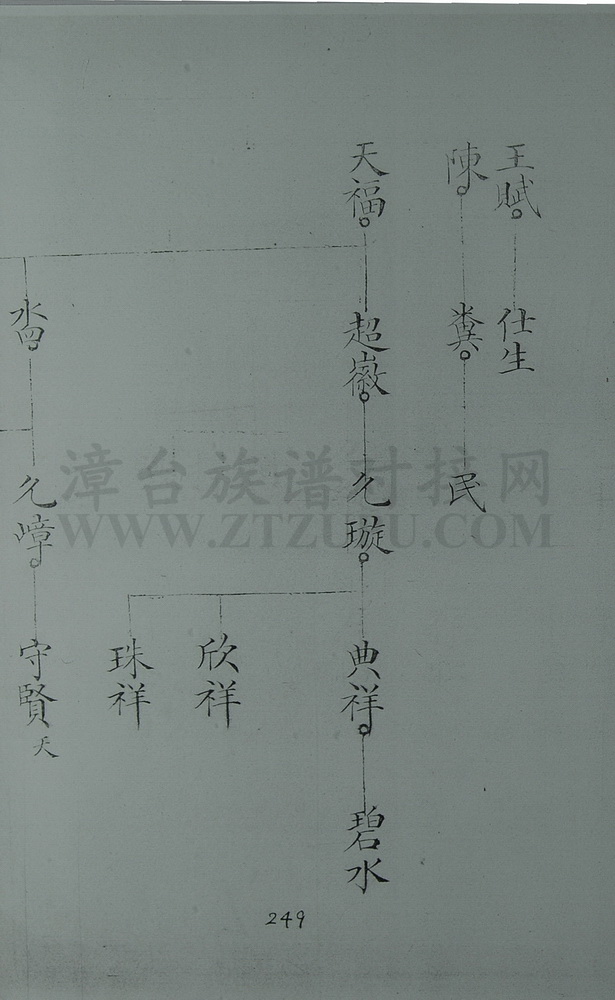 王賦
仕生
陳
糞
民
天福
超徽
允璇
典祥
碧水
欣祥
珠祥
允嶂
守賢
天
漳台族谱对接网
WWW.ZTZUPU.COM
249